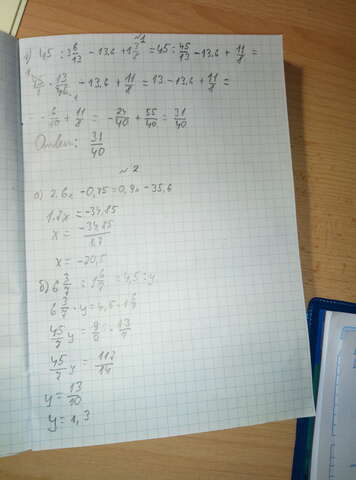 №1
а) 45 : 3 6/13 − 13,6 + 1 3/8 = 45 : 45/13 − 13,6 + 11/8 =
45/1 · 13/45 − 13,6 + 11/8 = 13 − 13,6 + 11/8 =
− 6/10 + 11/8 = − 24/40 + 55/40 = 31/40
Ответ: 31/40
№2
а) 2,6x − 0,75 = 0,9x − 35,6
1,7x = −34,85
x = −34,85/1,7
x = −20,5
б) 6 3/7 : 1 6/7 = 4,5 : y
6 3/7 · y = 4,5 · 1 6/7
45/7 y = 9/2 · 13/7
45/7 y = 117/14
y = 13/10
y = 1,3